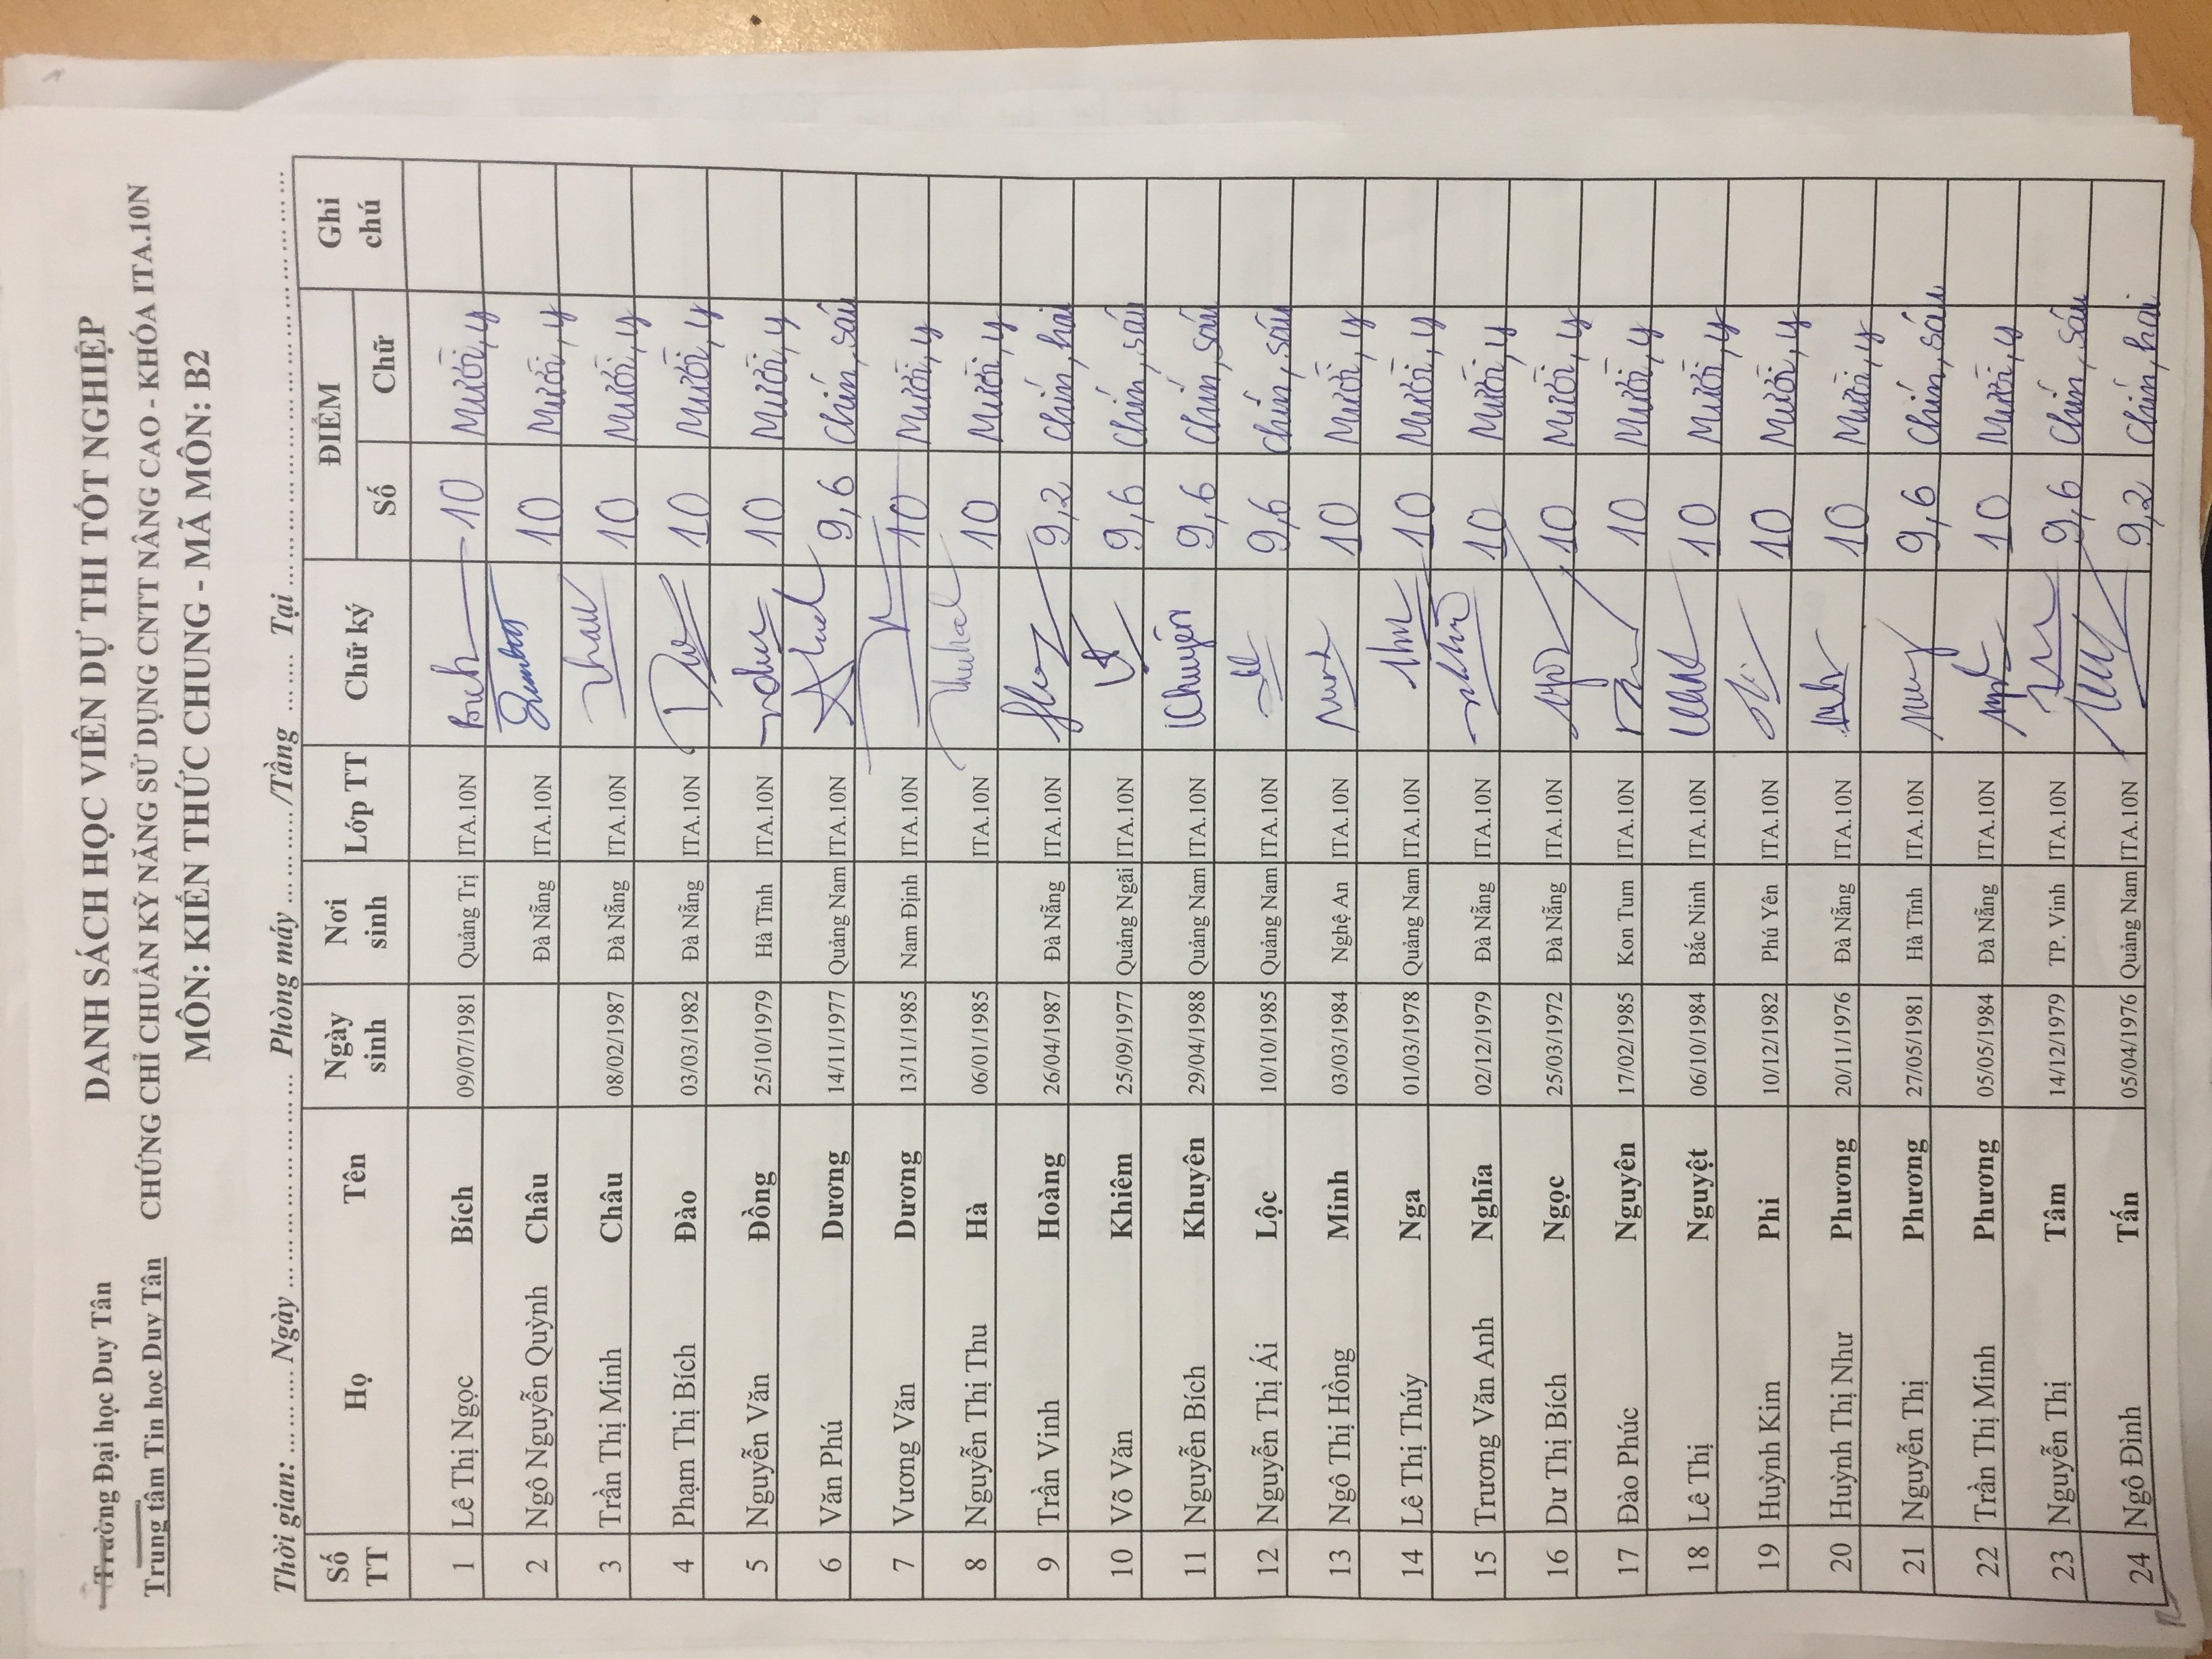 Trường Đại học Duy Tân
Trung tâm Tin học Duy Tân
DANH SÁCH HỌC VIÊN DỰ THI TỐT NGHIỆP
CHỨNG CHỈ CHUẨN KỸ NĂNG SỬ DỤNG CNTT NÂNG CAO - KHÓA ITA.10N
MÔN: KIẾN THỨC CHUNG - MÃ MÔN: B2
Thời gian: ............ Ngày ........................... Phòng máy ............ /Tầng ....... Tại ...........................
Số TT Họ Tên Ngày sinh Nơi sinh Lớp TT Chữ ký ĐIỂM Ghi chú
Số Chữ
1 Lê Thị Ngọc Bích 09/07/1981 Quảng Trị ITA.10N Bích 10 Mười, y
2 Ngô Nguyễn Quỳnh Châu Đà Nẵng ITA.10N 10 Mười, y
3 Trần Thị Minh Châu 08/02/1987 Đà Nẵng ITA.10N 10 Mười, y
4 Phạm Thị Bích Đào 03/03/1982 Đà Nẵng ITA.10N 10 Mười, y
5 Nguyễn Văn Đồng 25/10/1979 Hà Tĩnh ITA.10N 10 Mười, y
6 Văn Phú Dương 14/11/1977 Quảng Nam ITA.10N 9,6 Chín, sáu
7 Vương Văn Dương 13/11/1985 Nam Định ITA.10N 10 Mười, y
8 Nguyễn Thị Thu Hà 06/01/1985 ITA.10N 10 Mười, y
9 Trần Vinh Hoàng 26/04/1987 Đà Nẵng ITA.10N 9,2 Chín, hai
10 Võ Văn Khiêm 25/09/1977 Quảng Ngãi ITA.10N 9,6 Chín, sáu
11 Nguyễn Bích Khuyên 29/04/1988 Quảng Nam ITA.10N Khuyên 9,6 Chín, sáu
12 Nguyễn Thị Ái Lộc 10/10/1985 Quảng Nam ITA.10N 9,6 Chín, sáu
13 Ngô Thị Hồng Minh 03/03/1984 Nghệ An ITA.10N 10 Mười, y
14 Lê Thị Thúy Nga 01/03/1978 Quảng Nam ITA.10N 10 Mười, y
15 Trương Văn Anh Nghĩa 02/12/1979 Đà Nẵng ITA.10N 10 Mười, y
16 Dư Thị Bích Ngọc 25/03/1972 Đà Nẵng ITA.10N 10 Mười, y
17 Đào Phúc Nguyên 17/02/1985 Kon Tum ITA.10N 10 Mười, y
18 Lê Thị Nguyệt 06/10/1984 Bắc Ninh ITA.10N 10 Mười, y
19 Huỳnh Kim Phi 10/12/1982 Phú Yên ITA.10N 10 Mười, y
20 Huỳnh Thị Như Phương 20/11/1976 Đà Nẵng ITA.10N 10 Mười, y
21 Nguyễn Thị Phương 27/05/1981 Hà Tĩnh ITA.10N 9,6 Chín, sáu
22 Trần Thị Minh Phương 05/05/1984 Đà Nẵng ITA.10N 10 Mười, y
23 Nguyễn Thị Tâm 14/12/1979 TP. Vinh ITA.10N 9,6 Chín, sáu
24 Ngô Đình Tấn 05/04/1976 Quảng Nam ITA.10N 9,2 Chín, hai